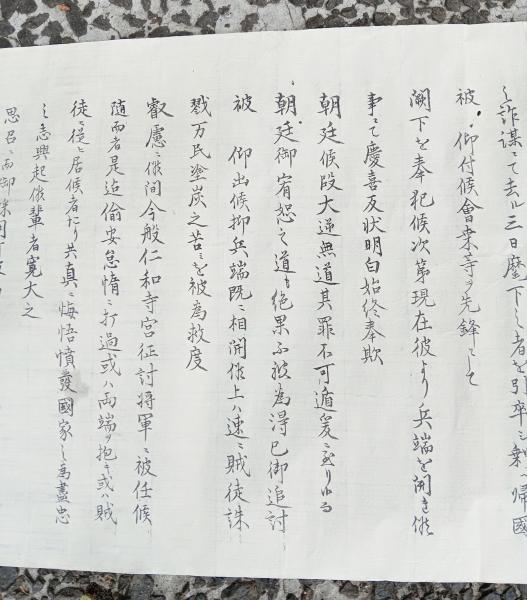 之詐謀ニて去ル三日麾下之者を引卒シ剰ヘ帰國
被 仰付候會桒等ヲ先鋒ニして
闕下を奉犯候次第現在彼より兵端を開き候
事ニて慶喜反状明白始終奉欺
朝廷候段大逆無道其罪不可遁爰ニ至りゆる
朝廷御宥恕之道も絶果不被為得已御追討
被 仰出候抑兵端既ニ相開候上ハ速ニ賊徒誅
戮万民塗炭之苦ミを被為救度
叡慮ニ候間今般仁和寺宮征討将軍ニ被任候
随而者是迄偷安怠惰ニ打過或ハ両端ヲ抱き或ハ賊
徒ニ従ニ居候者たり共真ニ悔悟憤發國家之為盡忠
之志興起候輩者寛大之
思召ニ而御採用可